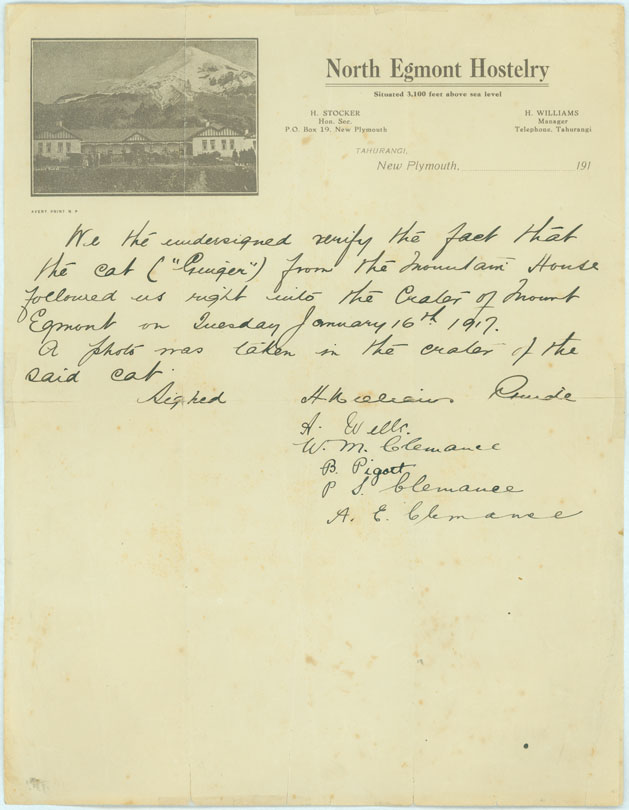 North Egmont Hostelry
Situated 3,100 feet above sea level
H. STOCKER
Hon. Sec.
P.O. Box 19, New Plymouth
H. WILLIAMS
Manager
Telephone, Tahurangi
TAHURANGI,
New Plymouth, 191
AVERY PRINT N.P.
We the undersigned verify the fact that
the cat ("Ginger") from the Mountain House
followed us right into the Crater of Mount
Egmont on Tuesday January 16th 1917.
A photo was taken in the crater of the
said cat.
Signed H Williams Guide
A. Wells.
W. M. Clemance
B. Pigott
P S. Clemance
A. E. Clemance